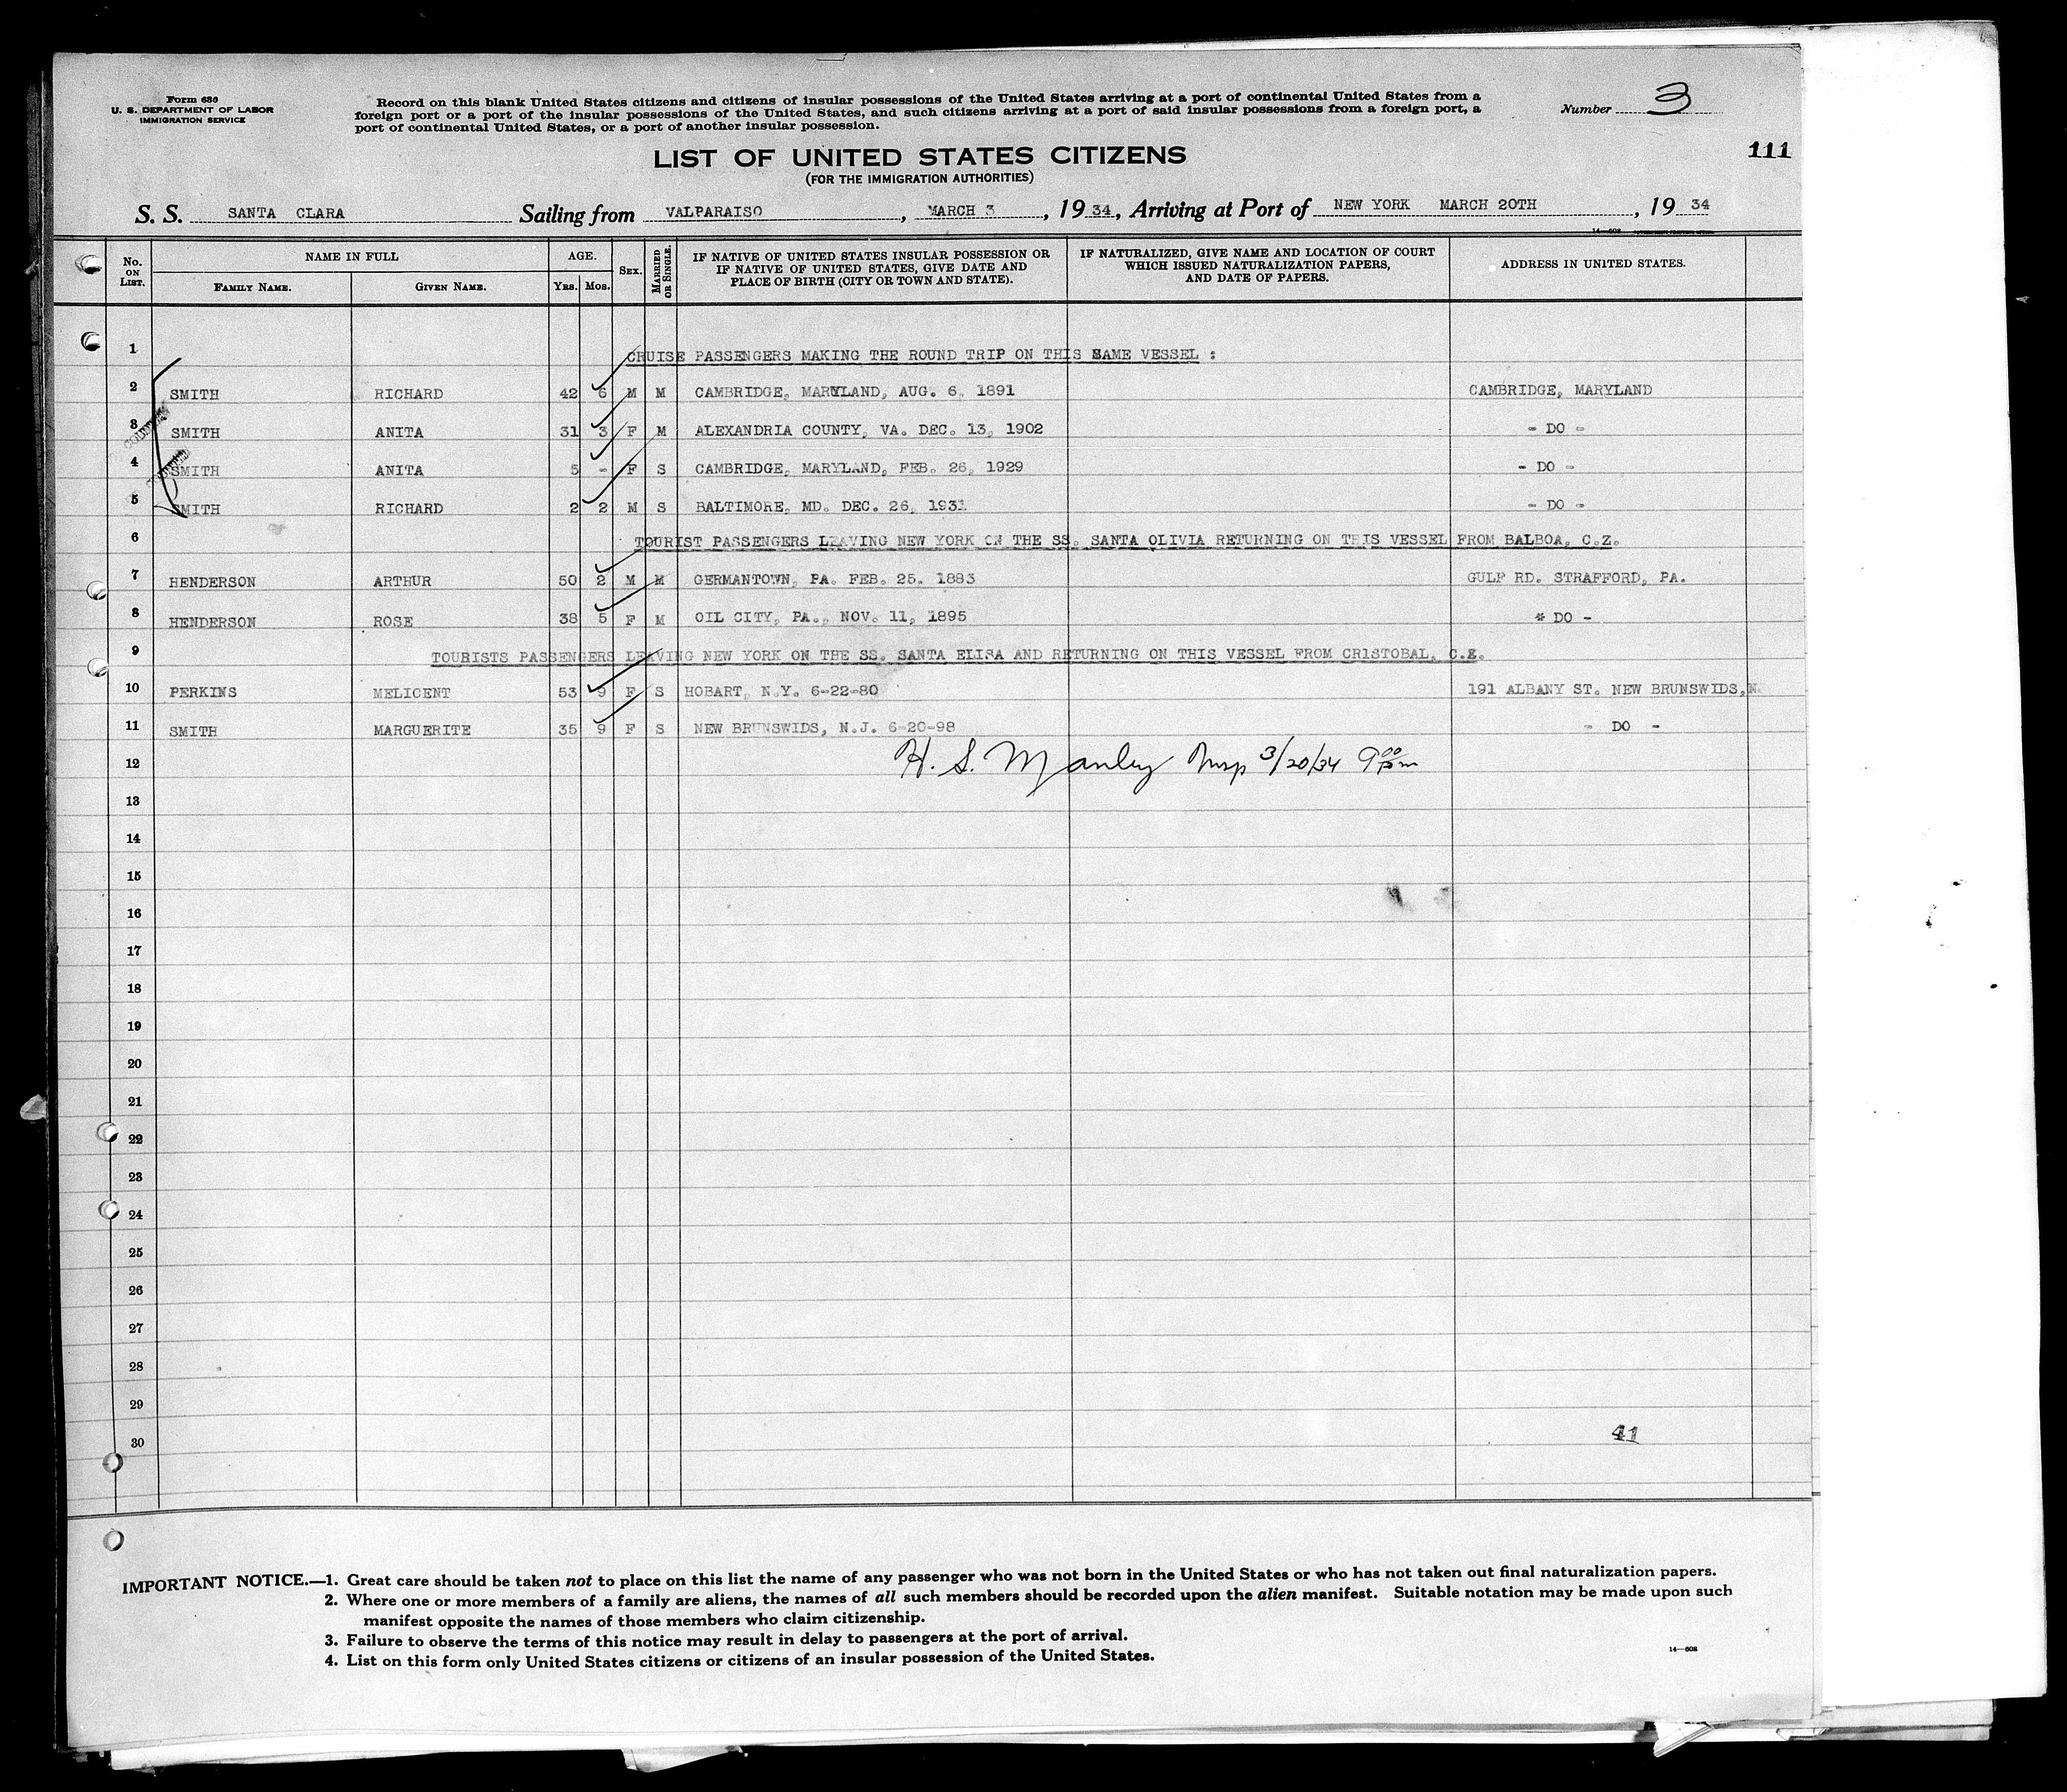 Form 630
U. S. DEPARTMENT OF LABOR
IMMIGRATION SERVICE
Record on this blank United States citizens and citizens of insular possessions of the United States arriving at a port of continental United States from a
foreign port or a port of the insular possessions of the United States, and such citizens arriving at a port of said insular possessions from a foreign port, a
port of continental United States, or a port of another insular possession.
Number 3
111
LIST OF UNITED STATES CITIZENS
(FOR THE IMMIGRATION AUTHORITIES)
S. S. SANTA CLARA Sailing from VALPARAISO, MARCH 3, 1934, Arriving at Port of NEW YORK MARCH 20TH, 1934
No. ON LIST. NAME IN FULL FAMILY NAME. GIVEN NAME. AGE. YRS. MOS. SEX. MARRIED OR SINGLE. IF NATIVE OF UNITED STATES INSULAR POSSESSION OR IF NATIVE OF UNITED STATES, GIVE DATE AND PLACE OF BIRTH (CITY OR TOWN AND STATE). IF NATURALIZED, GIVE NAME AND LOCATION OF COURT WHICH ISSUED NATURALIZATION PAPERS, AND DATE OF PAPERS. ADDRESS IN UNITED STATES.
1 CRUISE PASSENGERS MAKING THE ROUND TRIP ON THIS SAME VESSEL :
2 SMITH RICHARD 42 6 M M CAMBRIDGE, MARYLAND, AUG. 6, 1891 CAMBRIDGE, MARYLAND
3 SMITH ANITA 31 3 F M ALEXANDRIA COUNTY, VA. DEC. 13, 1902 - DO -
4 SMITH ANITA 5 - F S CAMBRIDGE, MARYLAND, FEB. 26, 1929 - DO -
5 SMITH RICHARD 2 2 M S BALTIMORE, MD. DEC. 26, 1931 - DO -
6 TOURIST PASSENGERS LEAVING NEW YORK ON THE SS. SANTA OLIVIA RETURNING ON THIS VESSEL FROM BALBOA, C.Z.
7 HENDERSON ARTHUR 50 2 M M GERMANTOWN, PA. FEB. 25. 1883 GULF RD. STRAFFORD, PA.
8 HENDERSON ROSE 38 5 F M OIL CITY, PA., NOV. 11, 1895 * DO -
9 TOURISTS PASSENGERS LEAVING NEW YORK ON THE SS. SANTA ELISA AND RETURNING ON THIS VESSEL FROM CRISTOBAL, C.Z.
10 PERKINS MELICENT 53 9 F S HOBART, N.Y. 6-22-80 191 ALBANY ST. NEW BRUNSWIDS, N.
11 SMITH MARGUERITE 35 9 F S NEW BRUNSWIDS, N.J. 6-20-98 - DO -
12 H. S. Manley Insp 3/20/34 9 00 pm
13
14
15
16
17
18
19
20
21
22
23
24
25
26
27
28
29
30
41
IMPORTANT NOTICE.—1. Great care should be taken not to place on this list the name of any passenger who was not born in the United States or who has not taken out final naturalization papers.
2. Where one or more members of a family are aliens, the names of all such members should be recorded upon the alien manifest. Suitable notation may be made upon such
manifest opposite the names of those members who claim citizenship.
3. Failure to observe the terms of this notice may result in delay to passengers at the port of arrival.
4. List on this form only United States citizens or citizens of an insular possession of the United States.
14—608